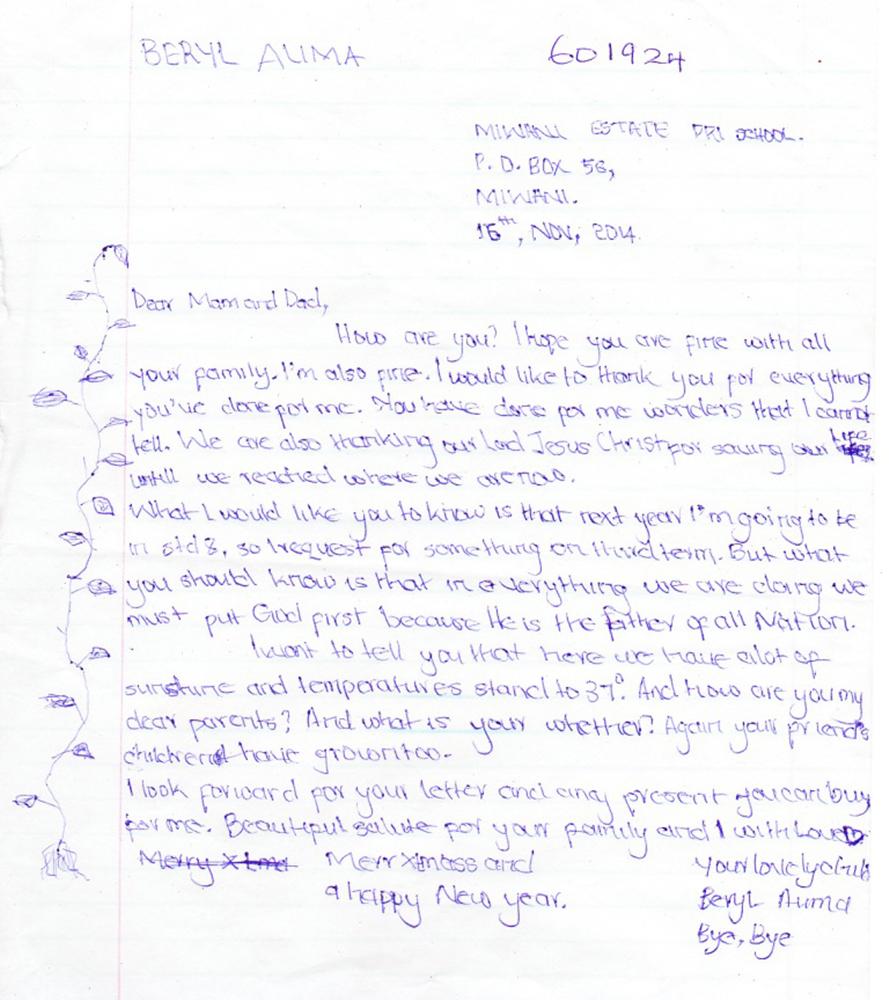 BERYL AUMA 601924
MIWANI ESTATE PRI SCHOOL.
P. O. BOX 56,
MIWANI.
15th, NOV, 2014.
Dear Mam and Dad,
How are you? I hope you are fine with all
your family. I'm also fine. I would like to thank you for everything
you've done for me. You have done for me wonders that I cannot
tell. We are also thanking our Lord Jesus Christ for saving our life
untill we reached where we are now.
What I would like you to know is that next year I'm going to be
in std 8, so I request for something on third term. But what
you should know is that in everything we are doing we
must put God first because He is the father of all Nation.
I want to tell you that here we have alot of
sunshine and temperatures stand to 37°. And how are you my
dear parents? And what is your whether? Again your friends
children have grown too.
I look forward for your letter and any present you can buy
for me. Beautiful salute for your family and I with Love
Merry Xtma Merr Xmass and your lovely
a happy New year. Beryl Auma
Bye, Bye